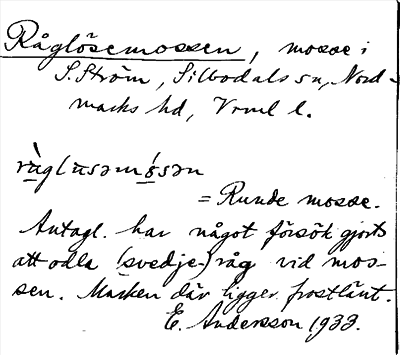 Råglösemossen, mosse i
S. Ström, Silbodals sn, Nord-
marks hd, Vrml l.
rùglʉsəmósən
= Runde mosse.
Antagl. har något försök gjorts
att odla (svedje-)råg vid mos-
sen. Marken där ligger frostlänt.
E. Andersson 1933.